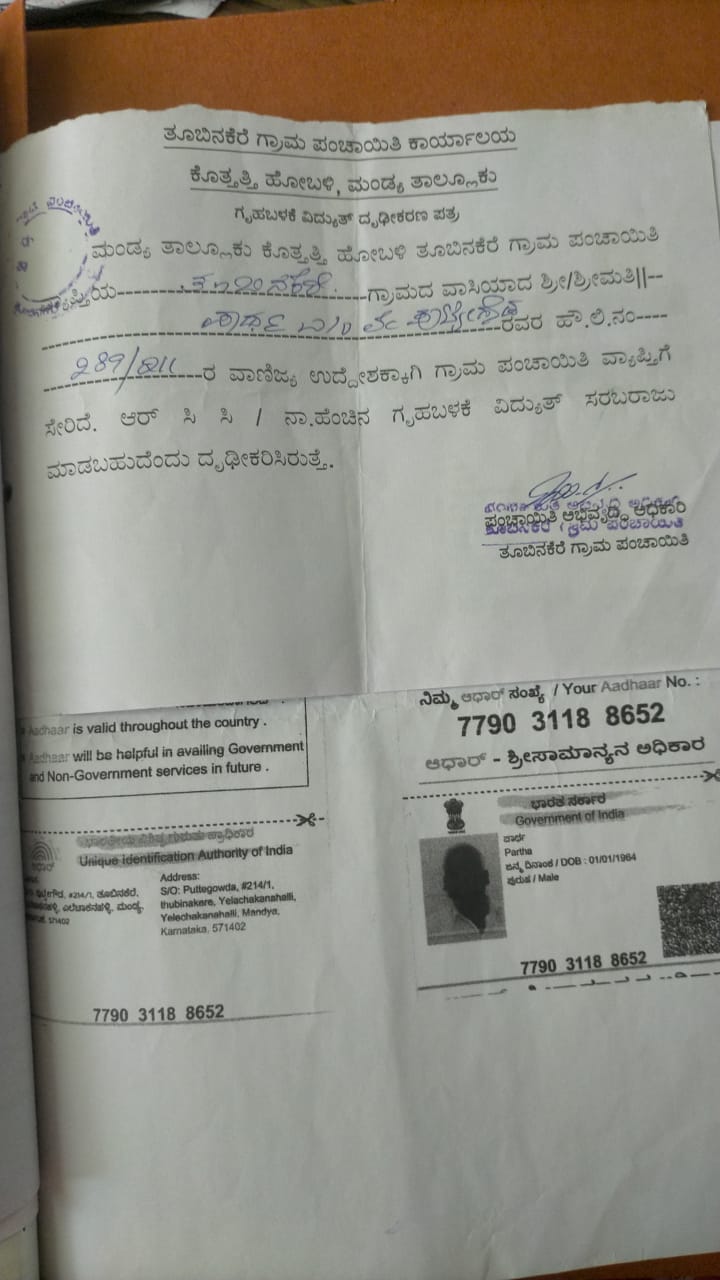 ತೂಬಿನಕೆರೆ ಗ್ರಾಮ ಪಂಚಾಯಿತಿ ಕಾರ್ಯಾಲಯ
ಕೊತ್ತತ್ತಿ ಹೋಬಳಿ, ಮಂಡ್ಯ ತಾಲ್ಲೂಕು
ಗೃಹಬಳಕೆ ವಿದ್ಯುತ್ ದೃಢೀಕರಣ ಪತ್ರ
ಮಂಡ್ಯ ತಾಲ್ಲೂಕು ಕೊತ್ತತ್ತಿ ಹೋಬಳಿ ತೂಬಿನಕೆರೆ ಗ್ರಾಮ ಪಂಚಾಯಿತಿ
ತೂಬಿನಕೆರೆ ಗ್ರಾಮದ ವಾಸಿಯಾದ ಶ್ರೀ/ಶ್ರೀಮತಿ||--
ರವರ ಹೌ.ಲಿ.ನಂ----
289/211 ರ ವಾಣಿಜ್ಯ ಉದ್ದೇಶಕ್ಕಾಗಿ ಗ್ರಾಮ ಪಂಚಾಯಿತಿ ವ್ಯಾಪ್ತಿಗೆ
ಸೇರಿದೆ. ಆರ್ ಸಿ ಸಿ / ನಾ.ಹೆಂಚಿನ ಗೃಹಬಳಕೆ ವಿದ್ಯುತ್ ಸರಬರಾಜು
ಮಾಡಬಹುದೆಂದು ದೃಢೀಕರಿಸಿರುತ್ತೆ.
ಪಂಚಾಯಿತಿ ಅಭಿವೃದ್ಧಿ ಅಧಿಕಾರಿ
ತೂಬಿನಕೆರೆ ಗ್ರಾಮ ಪಂಚಾಯಿತಿ
Aadhaar is valid throughout the country .
Aadhaar will be helpful in availing Government
and Non-Government services in future .
ನಿಮ್ಮ ಆಧಾರ್ ಸಂಖ್ಯೆ / Your Aadhaar No. :
7790 3118 8652
ಆಧಾರ್ - ಶ್ರೀಸಾಮಾನ್ಯನ ಅಧಿಕಾರ
Unique Identification Authority of India
Address:
S/O: Puttegowda, #214/1,
thubinakare, Yelachakanahalli,
Yelachakanahalli, Mandya,
Karnataka, 571402
#214/1, ತೂಬಿನಕೆರೆ,
ಎಲೆಚಾಕನಹಳ್ಳಿ, ಮಂಡ್ಯ,
571402
7790 3118 8652
ಭಾರತ ಸರ್ಕಾರ
Government of India
ಪಾರ್ಥ
Partha
ಜನ್ಮ ದಿನಾಂಕ / DOB : 01/01/1964
ಪುರುಷ / Male
7790 3118 8652